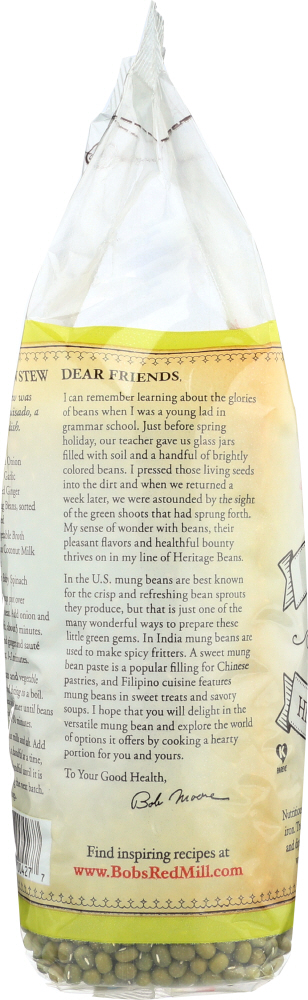 DEAR FRIENDS,
I can remember learning about the glories
of beans when I was a young lad in
grammar school. Just before spring
holiday, our teacher gave us glass jars
filled with soil and a handful of brightly
colored beans. I pressed those living seeds
into the dirt and when we returned a
week later, we were astounded by the sight
of the green shoots that had sprung forth.
My sense of wonder with beans, their
pleasant flavors and healthful bounty
thrives on in my line of Heritage Beans.
In the U.S. mung beans are best known
for the crisp and refreshing bean sprouts
they produce, but that is just one of the
many wonderful ways to prepare these
little green gems. In India mung beans are
used to make spicy fritters. A sweet mung
bean paste is a popular filling for Chinese
pastries, and Filipino cuisine features
mung beans in sweet treats and savory
soups. I hope that you will delight in the
versatile mung bean and explore the world
of options it offers by cooking a hearty
portion for you and yours.
To Your Good Health,
Bob Moore
Find inspiring recipes at
www.BobsRedMill.com
STEW
was
Onion
Ginger
sorted
Broth
Coconut Milk
Spinach
over
onion and
minutes.
vegetable
is a boil.
until beans
minutes.
Add
at a time,
until it is
batch.
7
iron.
and